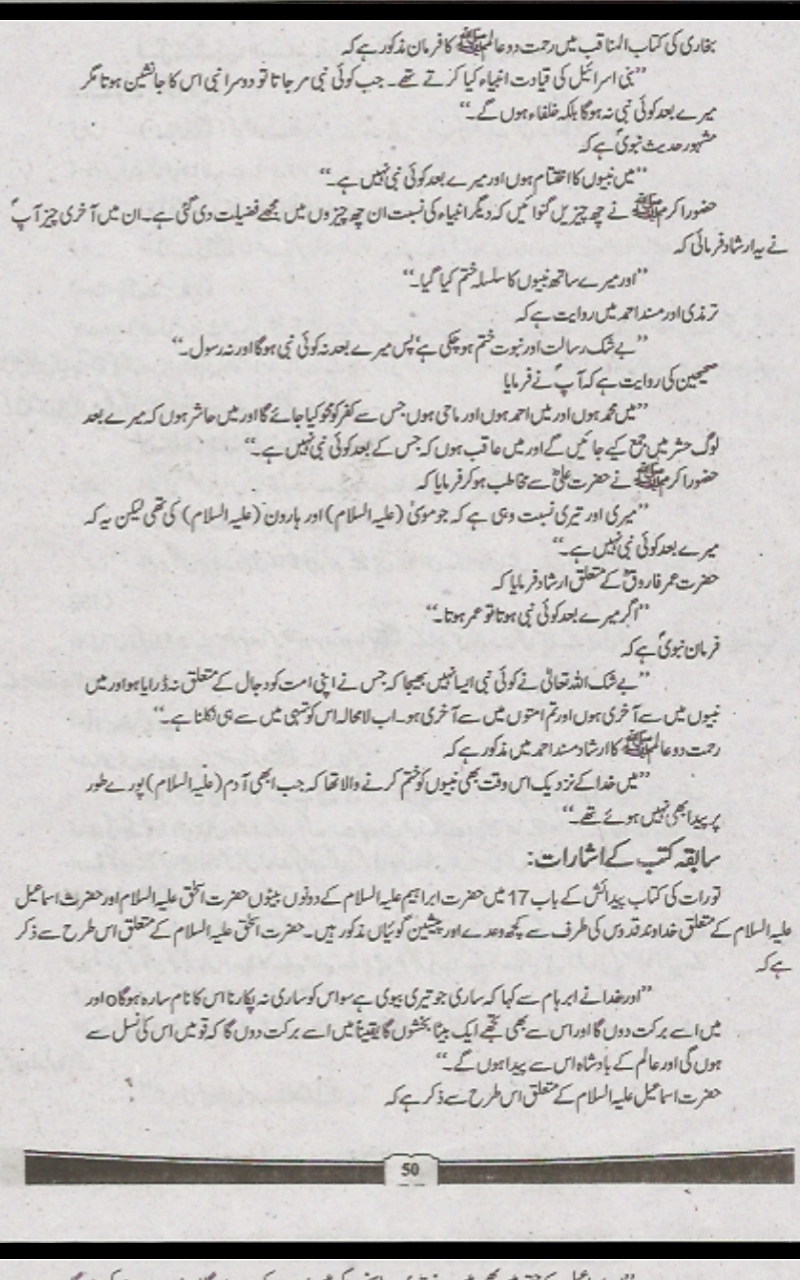 بخاری کی کتاب المناقب میں رحمت دوعالم ﷺ کا فرمان مذکور ہے کہ
’’بنی اسرائیل کی قیادت انبیاء کیا کرتے تھے۔ جب کوئی نبی مرجاتا تو دوسرا نبی اس کا جانشین ہوتا مگر
میرے بعد کوئی نبی نہ ہوگا بلکہ خلفاء ہوں گے۔‘‘
مشہور حدیث نبویؐ ہے کہ
’’میں نبیوں کا اختتام ہوں اور میرے بعد کوئی نبی نہیں ہے۔‘‘
حضور اکرم ﷺ نے چھ چیزیں گنوائیں کہ دیگر انبیاء کی نسبت ان چھ چیزوں میں مجھے فضیلت دی گئی ہے۔ ان میں آخری چیز آپؐ
نے یہ ارشاد فرمائی کہ
’’اور میرے ساتھ نبیوں کا سلسلہ ختم کیا گیا۔‘‘
ترمذی اور مسند احمد میں روایت ہے کہ
’’بے شک رسالت اور نبوت ختم ہوچکی ہے‘ پس میرے بعد نہ کوئی نبی ہوگا اور نہ رسول۔‘‘
صحیحین کی روایت ہے کہ آپؐ نے فرمایا
’’میں محمد ہوں اور میں احمد ہوں اور ماحی ہوں جس سے کفر کو محو کیا جائے گا اور میں حاشر ہوں کہ میرے بعد
لوگ حشر میں جمع کیے جائیں گے اور میں عاقب ہوں کہ جس کے بعد کوئی نبی نہیں ہے۔‘‘
حضور اکرم ﷺ نے حضرت علیؓ سے مخاطب ہوکر فرمایا کہ
’’میری اور تیری نسبت وہی ہے کہ جو موسیٰ (علیہ السلام) اور ہارون (علیہ السلام) کی تھی لیکن یہ کہ
میرے بعد کوئی نبی نہیں ہے۔‘‘
حضرت عمر فاروقؓ کے متعلق ارشاد فرمایا کہ
’’اگر میرے بعد کوئی نبی ہوتا تو عمر ہوتا۔‘‘
فرمان نبویؐ ہے کہ
’’بے شک اللہ تعالیٰ نے کوئی نبی ایسا نہیں بھیجا کہ جس نے اپنی امت کو دجال کے متعلق نہ ڈرایا ہو اور میں
نبیوں میں سے آخری ہوں اور تم امتوں میں سے آخری ہو۔ اب لامحالہ اس کو تمہی میں سے ہی نکلنا ہے۔‘‘
رحمت دوعالم ﷺ کا ارشاد مسند احمد میں مذکور ہے کہ
’’میں خدا کے نزدیک اس وقت بھی نبیوں کو ختم کرنے والا تھا کہ جب ابھی آدم (علیہ السلام) پورے طور
پر پیدا بھی نہیں ہوئے تھے۔‘‘
سابقہ کتب کے اشارات:
تورات کی کتاب پیدائش کے باب 17 میں حضرت ابراہیم علیہ السلام کے دونوں بیٹوں حضرت اسحٰق علیہ السلام اور حضرت اسماعیل
علیہ السلام کے متعلق خداوند قدوس کی طرف سے کچھ وعدے اور پیشین گوئیاں مذکور ہیں۔ حضرت اسحٰق علیہ السلام کے متعلق اس طرح سے ذکر
ہے کہ
’’اور خدا نے ابرہام سے کہا کہ ساری جو تیری بیوی ہے سو اس کو ساری نہ پکارنا اس کا نام سارہ ہوگا o اور
میں اسے برکت دوں گا اور اس سے بھی تجھے ایک بیٹا بخشوں گا یقیناً میں اسے برکت دوں گا کہ قومیں اس کی نسل سے
ہوں گی اور عالم کے بادشاہ اس سے پیدا ہوں گے۔‘‘
حضرت اسماعیل علیہ السلام کے متعلق اس طرح سے ذکر ہے کہ
50